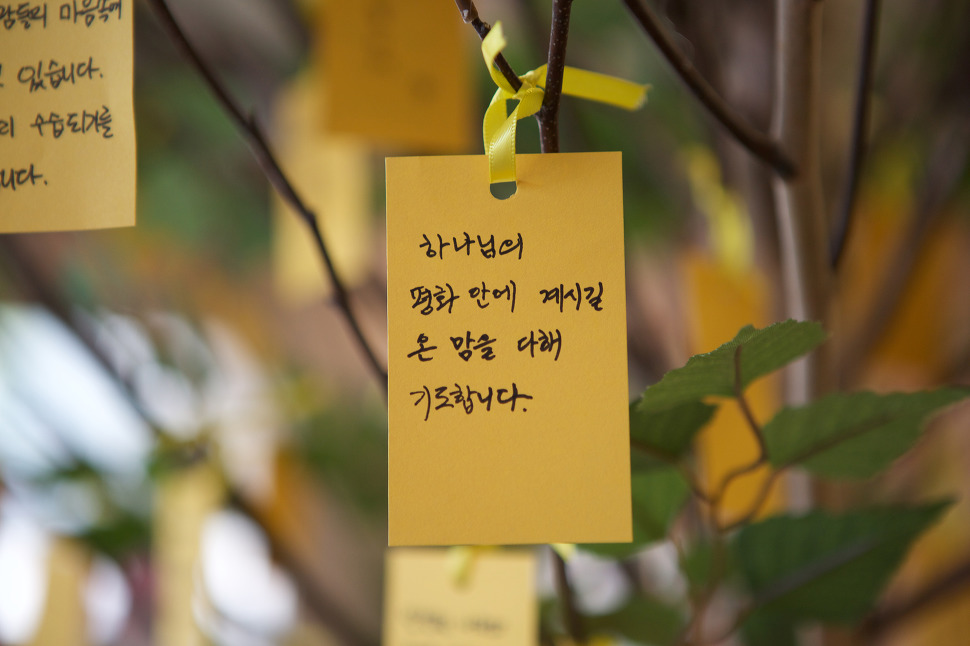 마음속에
있습니다.
수습되기를
하나님의
평화 안에 계시길
온 맘을 다해
기도합니다.